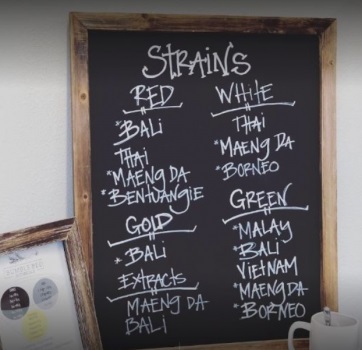 STRAINS
RED
*BALI
THAI
*MAENG DA
*BENTUANGIE
GOLD
*BALI
EXTRACTS
MAENG DA
BALI
WHITE
THAI
*MAENG DA
*BORNEO
GREEN
*MALAY
*BALI
VIETNAM
*MAENG DA
*BORNEO